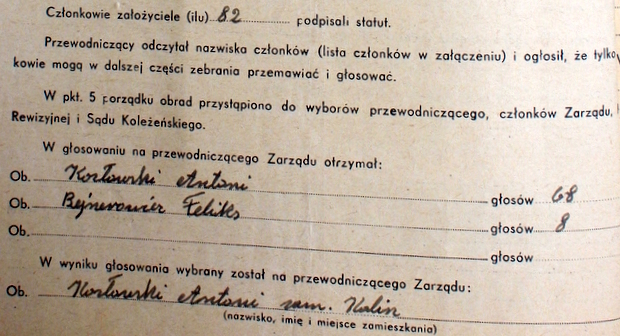 Członkowie założyciele (ilu) 82 podpisali statut.
Przewodniczący odczytał nazwiska członków (lista członków w załączeniu) i ogłosił, że tylko
kowie mogą w dalszej części zebrania przemawiać i głosować.
W pkt. 5 porządku obrad przystąpiono do wyborów przewodniczącego, członków Zarządu,
Rewizyjnej i Sądu Koleżeńskiego.
W głosowaniu na przewodniczącego Zarządu otrzymał:
Ob. Kozłowski Antoni głosów 68
Ob. Feliks głosów 8
Ob. głosów
W wyniku głosowania wybrany został na przewodniczącego Zarządu:
Ob. Kozłowski Antoni zam. Kalin
(nazwisko, imię i miejsce zamieszkania)